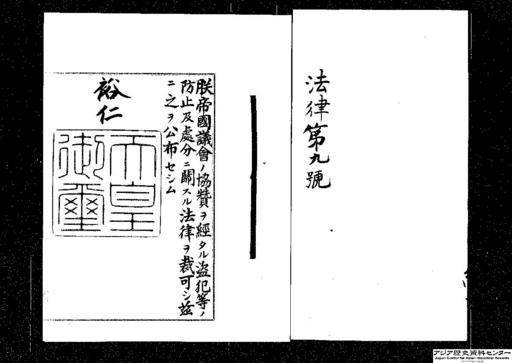 法律第九號
朕帝國議會ノ協賛ヲ經タル盜犯等ノ
防止及處分ニ關スル法律ヲ裁可シ茲
ニ之ヲ公布セシム
裕仁
天皇
御璽
アジア歴史資料センター
Japan Center for Asian Historical Records